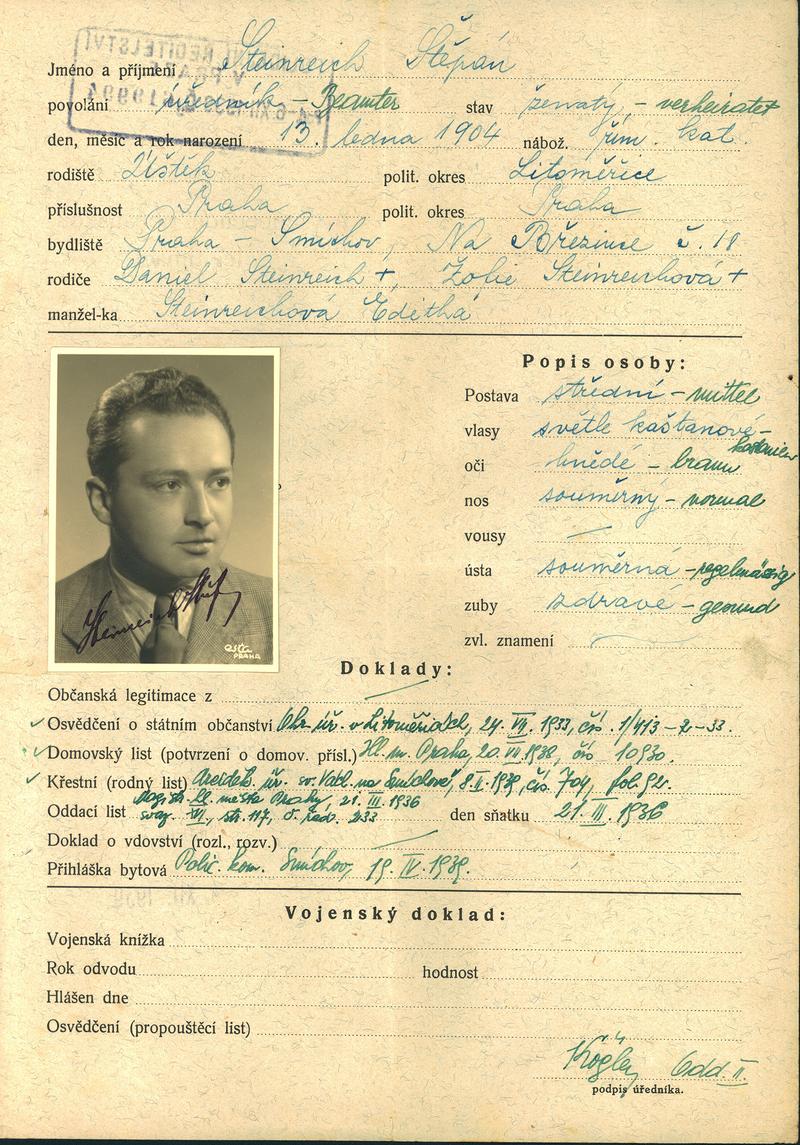 Jméno a příjmení Steinreich Štěpán
povolání úředník – Beamter stav ženatý – verheiratet
den, měsíc a rok narození 13. ledna 1904 nábož. řím. kat.
rodiště Úštěk polit. okres Litoměřice
příslušnost Praha polit. okres Praha
bydliště Praha – Smíchov, Na Březince č. 18
rodiče Daniel Steinreich +, Žofie Steinreichová +
manžel-ka Steinreichová Editha
Popis osoby:
Postava střední – mittel
vlasy světle kaštanové –
oči hnědé – braun
nos souměrný – normal
vousy —
ústa souměrná – regelmässig
zuby zdravé – gesund
zvl. znamení
PRAHA
Doklady:
Občanská legitimace z
Osvědčení o státním občanství Okr. úř. v Litoměřicích, 24. VII. 1933, čís. 1/413-2-33.
Domovský list (potvrzení o domov. přísl.) Hl. m. Praha, 20. VII. 1938, čís 10930.
Křestní (rodný list) úř. sv. Václ. na Smíchově, 8. II. 1939, čís. 704, fol. 92.
Oddací list Magistr. hl. města Prahy, 21. III. 1936
svaz. VI, str. 117, č. řad. 233 den sňatku 21. III. 1936
Doklad o vdovství (rozl., rozv.)
Přihláška bytová Polic. kom. Smíchov, 19. IV. 1939.
Vojenský doklad:
Vojenská knížka
Rok odvodu hodnost
Hlášen dne
Osvědčení (propouštěcí list)
Odd. II.
podpis úředníka.